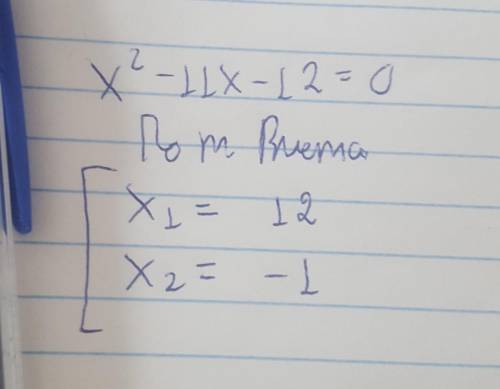 x² - 11x - 12 = 0
По т. Виета
x₁ = 12
x₂ = -1